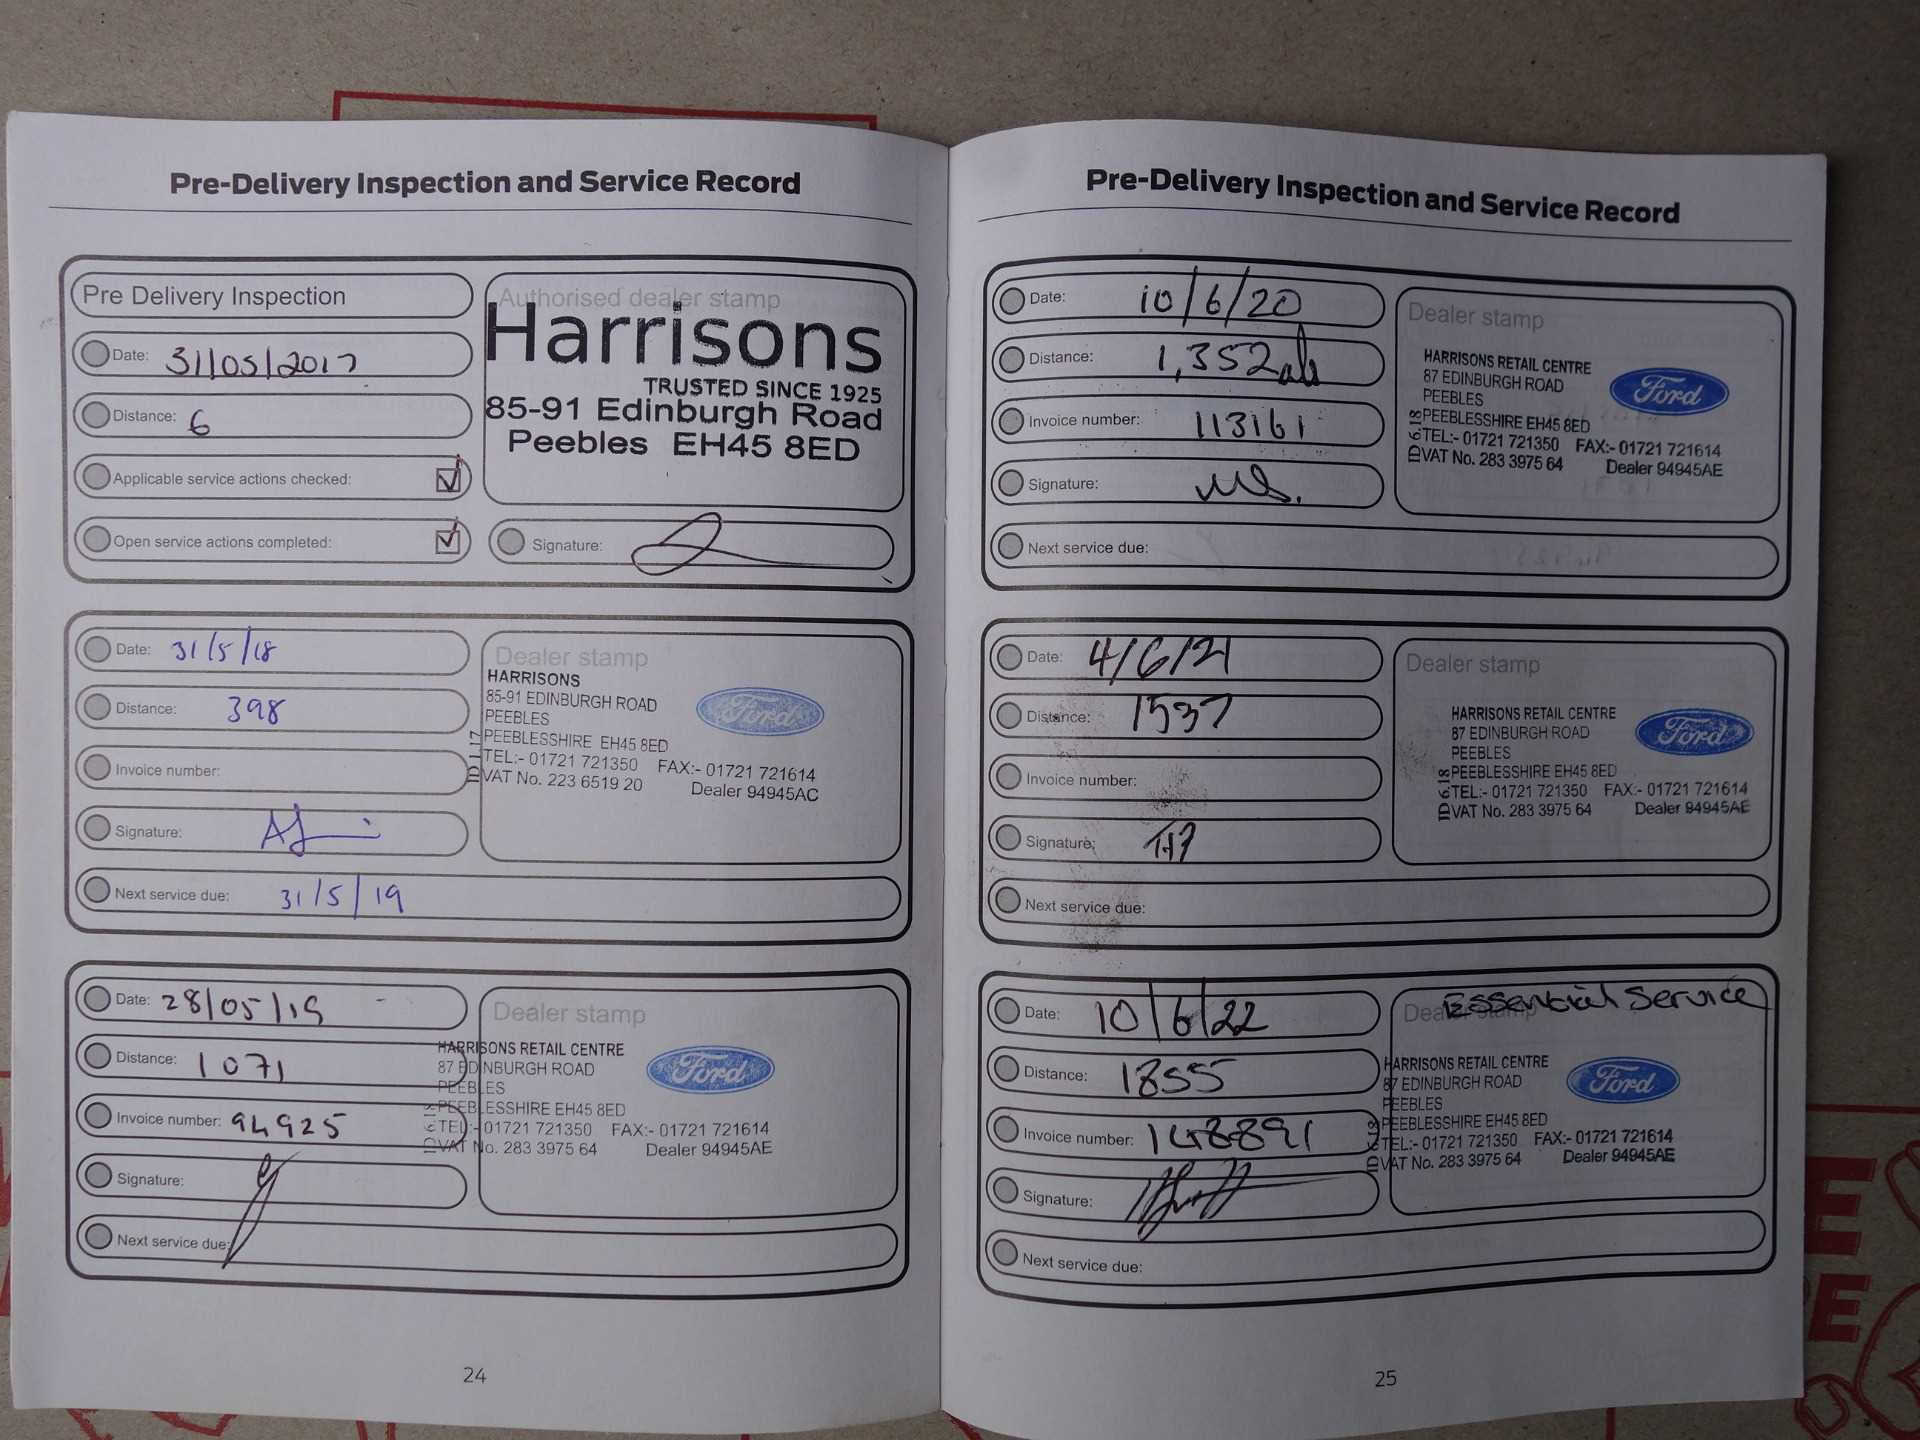 Pre-Delivery Inspection and Service Record
Pre Delivery Inspection
Authorised dealer stamp
Harrisons
TRUSTED SINCE 1925
85-91 Edinburgh Road
Peebles EH45 8ED
Date: 31/05/2017
Distance: 6
Applicable service actions checked:
Open service actions completed:
Signature:
Date: 31/5/18
Distance: 398
Invoice number:
Signature:
Next service due: 31/5/19
Dealer stamp
HARRISONS
85-91 EDINBURGH ROAD
PEEBLES
PEEBLESSHIRE EH45 8ED
TEL:- 01721 721350 FAX:- 01721 721614
VAT No. 223 6519 20 Dealer 94945AC
ID 1.17
Ford
Date: 28/05/19
Distance: 1071
Invoice number: 94925
Signature:
Next service due:
Dealer stamp
HARRISONS RETAIL CENTRE
87 EDINBURGH ROAD
PEEBLES
PEEBLESSHIRE EH45 8ED
TEL:- 01721 721350 FAX:- 01721 721614
VAT No. 283 3975 64 Dealer 94945AE
Ford
24
Pre-Delivery Inspection and Service Record
Date: 10/6/20
Distance: 1,352
Invoice number: 113161
Signature:
Next service due:
Dealer stamp
HARRISONS RETAIL CENTRE
87 EDINBURGH ROAD
PEEBLES
PEEBLESSHIRE EH45 8ED
TEL:- 01721 721350 FAX:- 01721 721614
VAT No. 283 3975 64 Dealer 94945AE
ID 6.18
Ford
Date: 4/6/21
Distance: 1537
Invoice number:
Signature:
Next service due:
Dealer stamp
HARRISONS RETAIL CENTRE
87 EDINBURGH ROAD
PEEBLES
PEEBLESSHIRE EH45 8ED
TEL:- 01721 721350 FAX:- 01721 721614
VAT No. 283 3975 64 Dealer 94945AE
ID 6.18
Ford
Date: 10/6/22
Distance: 1855
Invoice number: 148891
Signature:
Next service due:
Dealer stamp
Essential Service
HARRISONS RETAIL CENTRE
87 EDINBURGH ROAD
PEEBLES
PEEBLESSHIRE EH45 8ED
TEL:- 01721 721350 FAX:- 01721 721614
VAT No. 283 3975 64 Dealer 94945AE
Ford
25